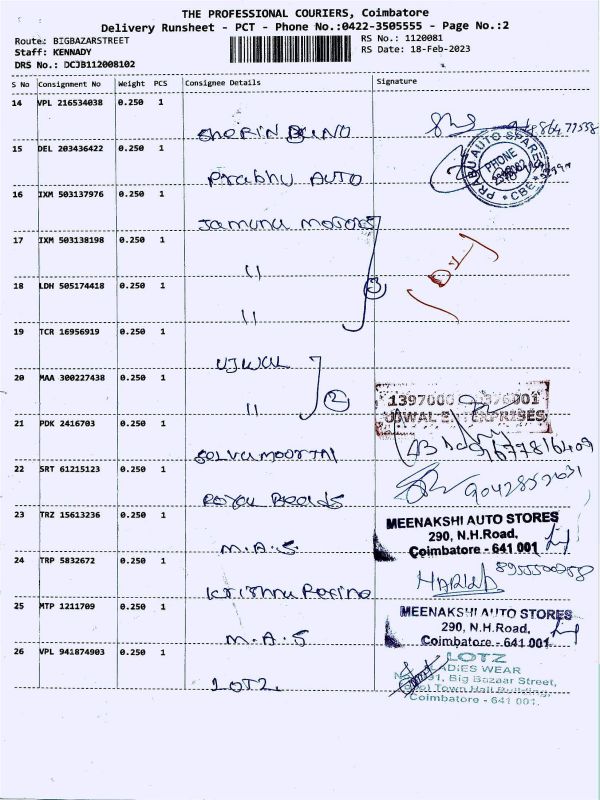 THE PROFESSIONAL COURIERS, Coimbatore
Delivery Runsheet - PCT - Phone No.:0422-3505555 - Page No.:2
Route: BIGBAZARSTREET
Staff: KENNADY
DRS No.: DCJB112008102
RS No.: 1120081
RS Date: 18-Feb-2023
S No Consignment No Weight PCS Consignee Details Signature
14 VPL 216534038 0.250 1
15 DEL 203436422 0.250 1 Prabhu AUTO
PRABU AUTO SPARES
PHONE
CBE
16 IXM 503137976 0.250 1 Jamuna motors
17 IXM 503138198 0.250 1 "
18 LDH 505174418 0.250 1 " 3
19 TCR 16956919 0.250 1 UJWAL
20 MAA 300227438 0.250 1 " 2
UJWAL ENTERPRISES
21 PDK 2416703 0.250 1
22 SRT 61215123 0.250 1 Royal Beads
23 TRZ 15613236 0.250 1 M.A.S
MEENAKSHI AUTO STORES
290, N.H.Road,
Coimbatore - 641 001
24 TRP 5832672 0.250 1 Krishna
25 MTP 1211709 0.250 1 M.A.S
MEENAKSHI AUTO STORES
290, N.H.Road,
Coimbatore - 641 001
26 VPL 941874903 0.250 1 LOTZ
LOTZ
LADIES WEAR
Big Bazaar Street,
Town Hall Building,
Coimbatore - 641 001.